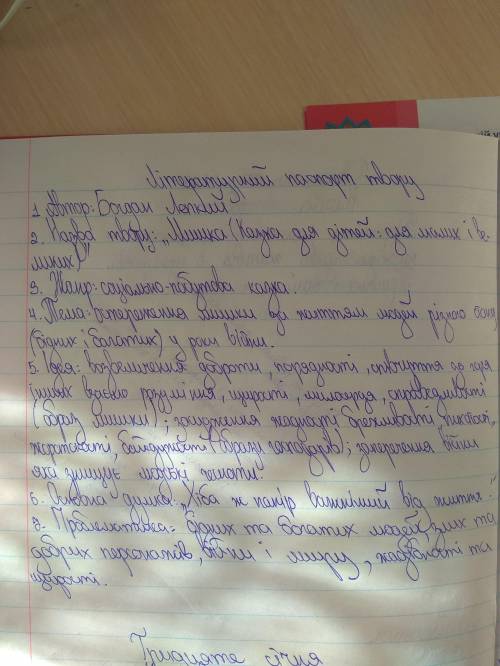 Літературний паспорт твору
1. Автор: Богдан Лепкий
2. Назва твору: „Мишка (Казка для дітей: для малих і ве-
ликих)"
3. Жанр: соціально-побутова казка.
4. Тема: спостереження мишки за життям людей різного
(бідних і багатих) у роки війни.
5. Ідея: возвеличення доброти, порядності, співчуття до горя
інших, розуміння, щирості, милосердя, справедливості
(образ мишки); засудження жадності, брехливості,
жорстокості, байдужості (образи господарів); заперечення війни
яка знищує людські чесноти.
6. Основна думка: „Хіба ж папір важніший від життя."
7. Проблематика: бідних та багатих людей, злих та
добрих персонажів, війни і миру, жадібності та
щирості.
Тринадцяте січня